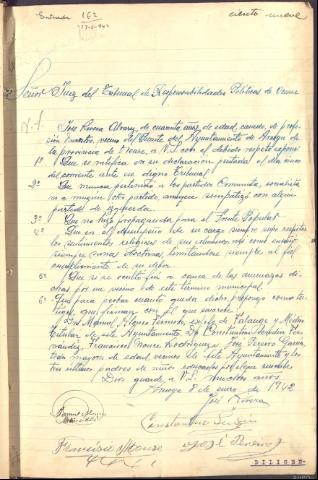 Entrada 162
17-1-942
ciento nueve
Señor Juez del Tribunal de Responsabilidades Políticas de Orense
José Rivera Alvarez, de cuarenta años de edad, casado, de profe-
sión Maestro, vecino del Puente del Ayuntamiento de
la provincia de Orense, a V.S. con el debido respeto expone
1º Que se ratifica en su declaración prestada el día nueve
del corriente ante su digno Tribunal.
2º Que nunca perteneció a los partidos Comunista, socialista
ni a ningún otro partido, aunque simpatizó con algún
partido de izquierda.
3º Que no hizo propaganda para el Frente Popular
4º Que en el desempeño de su cargo siempre supo respetar
los sentimientos religiosos de sus alumnos,
siempre sanas doctrinas, limitándose siempre al fiel
cumplimiento de su deber.
5º Que si se ocultó fue a causa de las amenazas di-
chas por un vecino de este término municipal.
6º Que para probar cuanto queda dicho propongo como tes-
tigos, que firman con el que suscribe:
Don Manuel Alonso
de este Ayuntamiento, D. Constantino
Francisco Moure Rodríguez y José Pereiro García,
mayores de edad, vecinos de este Ayuntamiento y los
tres últimos padres de niños educados por el que suscribe.
Dios guarde a V.S. muchos años.
8 de enero de 1942
José Rivera
Manuel Alonso
Constantino
Francisco Mouro
José Pereiro
DILIGEN-